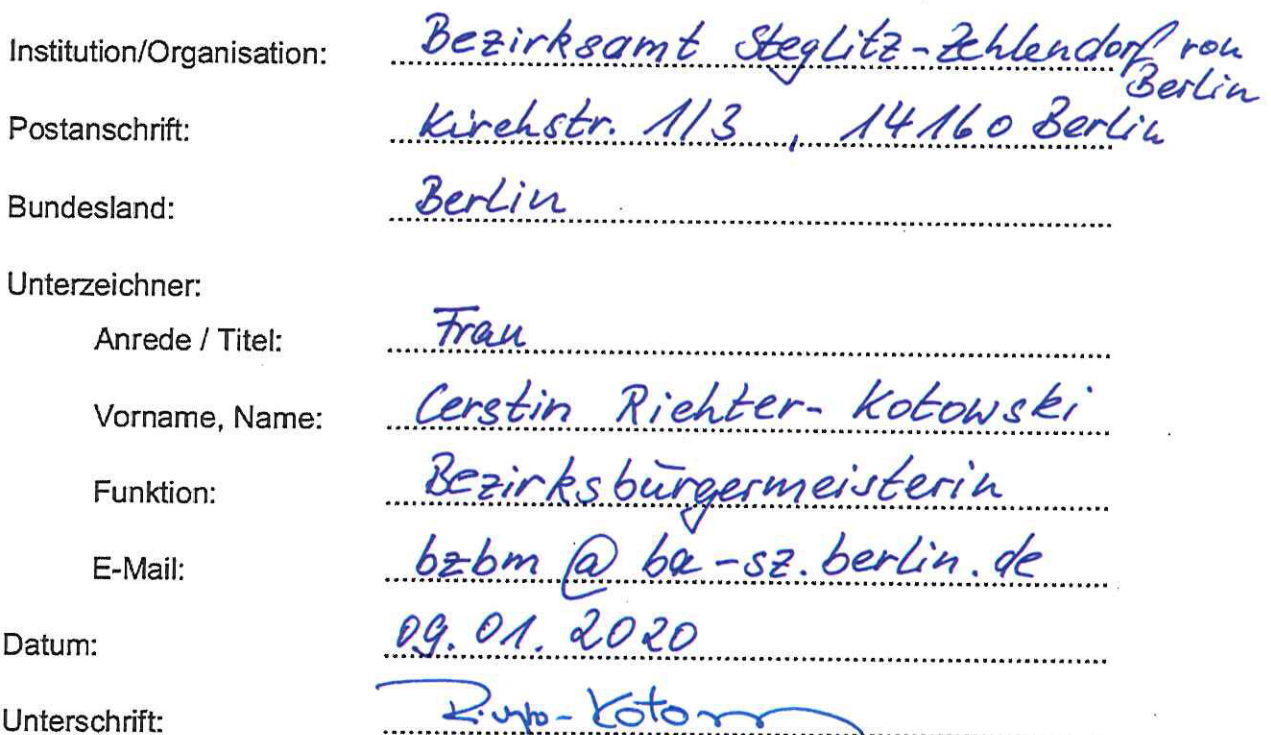 Institution/Organisation: Bezirksamt Steglitz-Zehlendorf von
Berlin
Postanschrift: Kirchstr. 1/3, 14160 Berlin
Bundesland: Berlin
Unterzeichner:
Anrede / Titel: Frau
Vorname, Name: Cerstin Richter-Kotowski
Funktion: Bezirksbürgermeisterin
E-Mail: bzbm@ba-sz.berlin.de
Datum: 09.01.2020
Unterschrift: